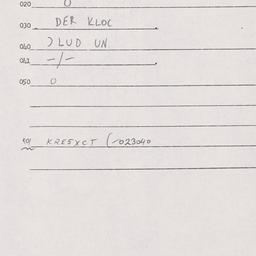 020 0
030 DER KLOC
040 ) LUD UN
041 -/-
050 0
KRESXCT (-023040